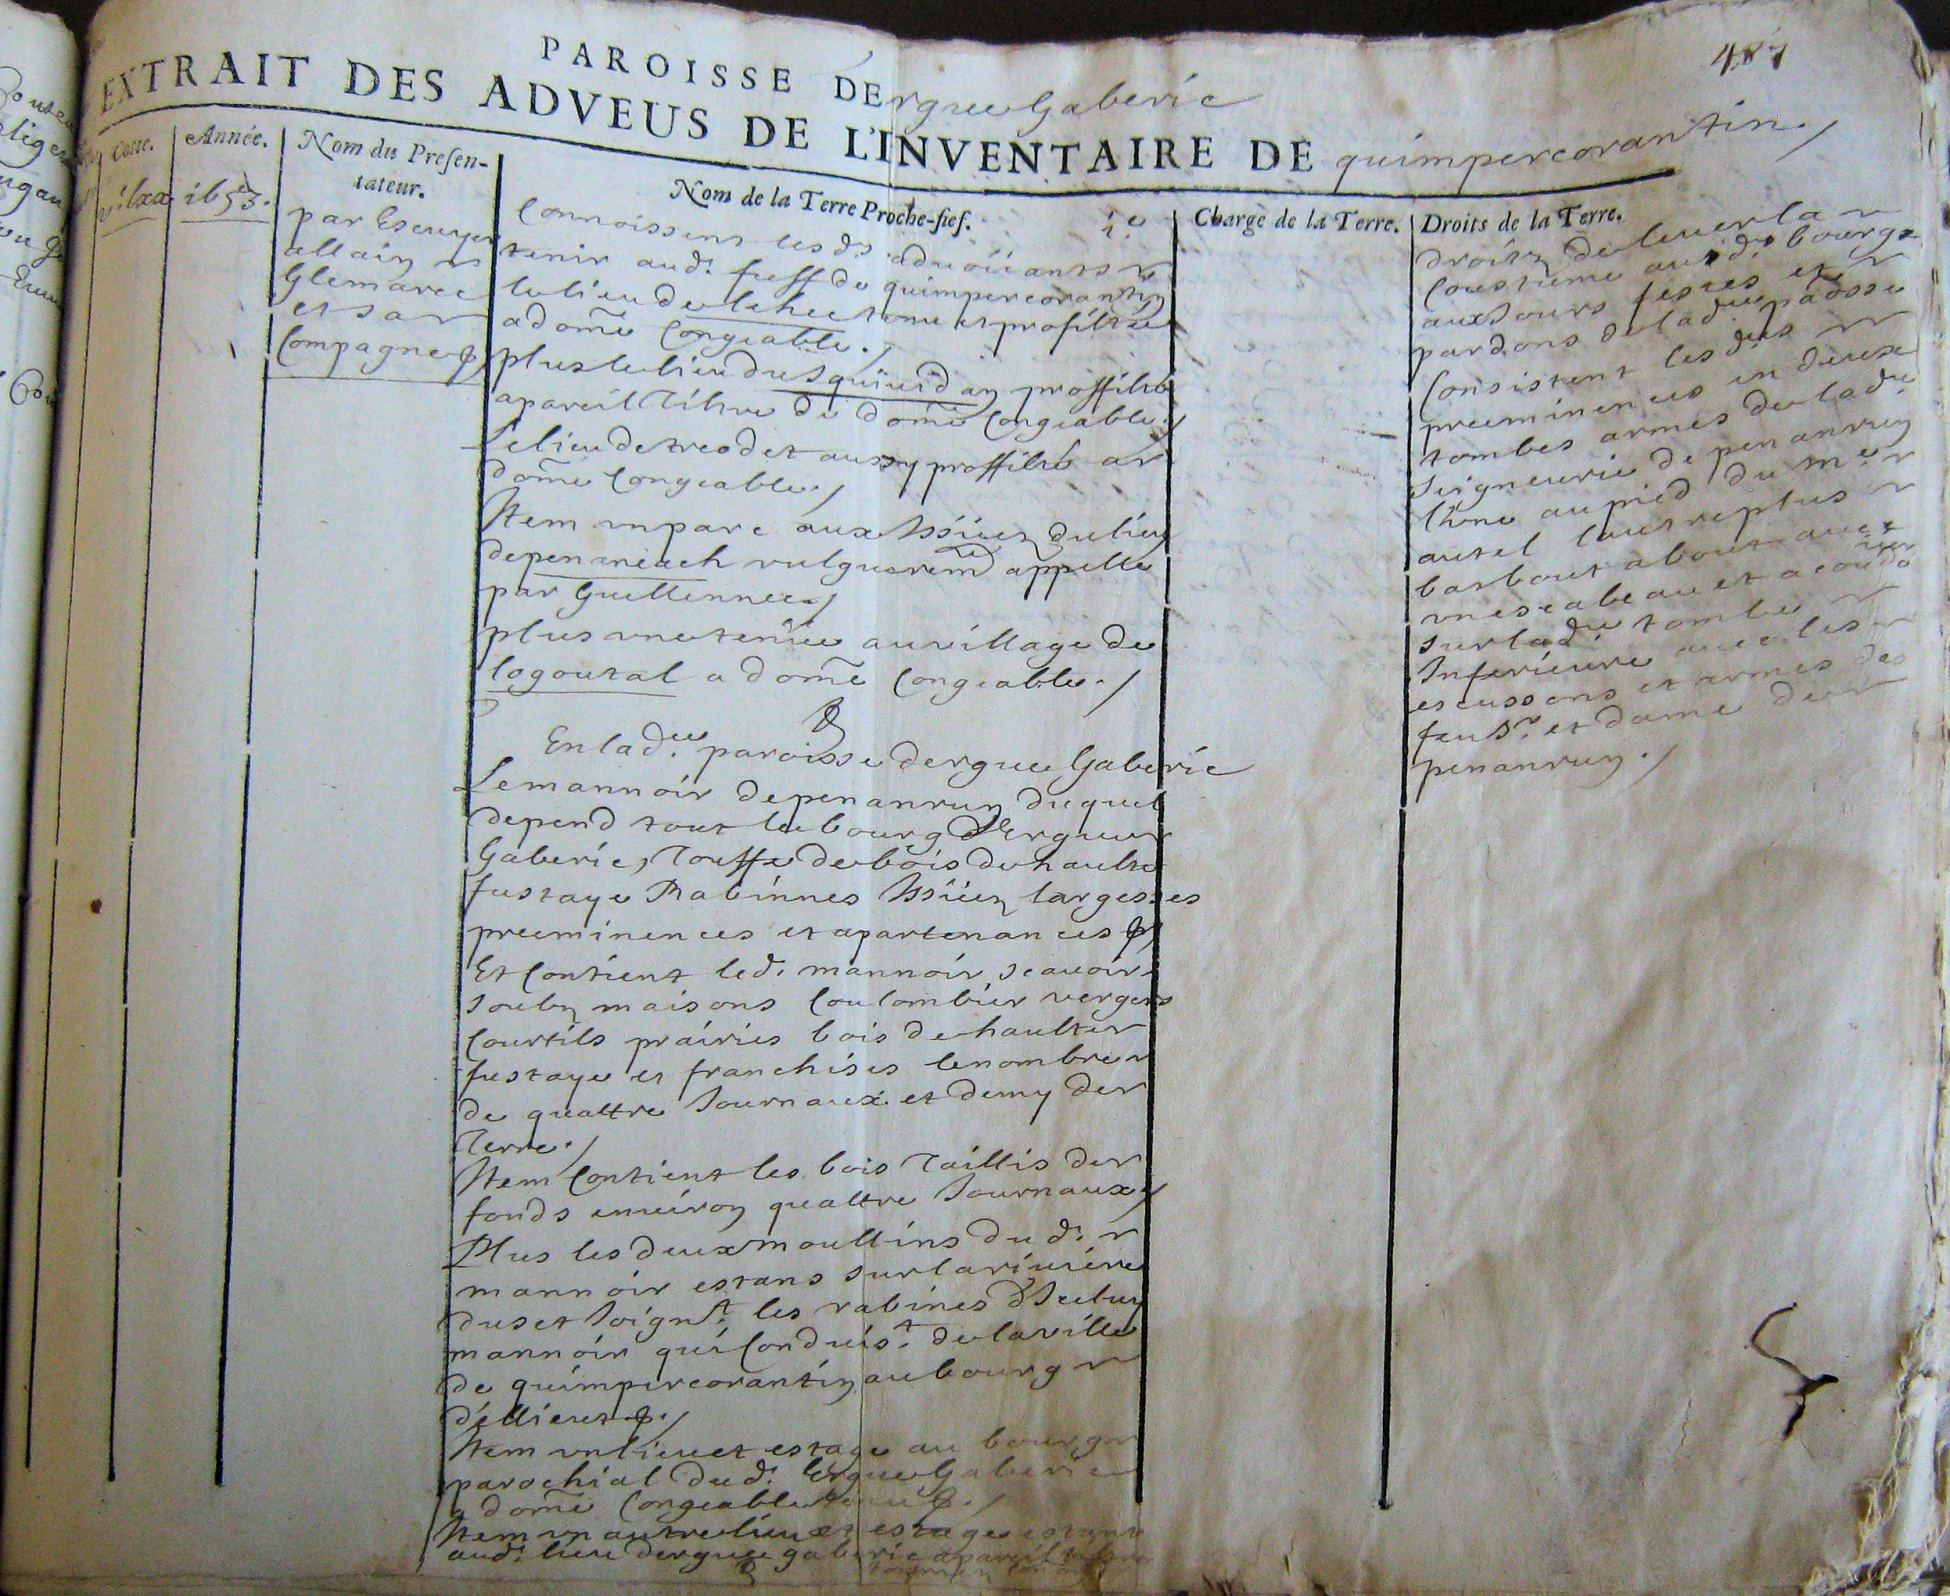 487
PAROISSE DErgue Gaberic
EXTRAIT DES ADVEUS DE L'INVENTAIRE DE quimpercorantin./
Cotte.
Année.
Nom du Presen-
tateur.
Nom de la Terre Proche-fief.
Charge de la Terre.
Droits de la Terre.
1653.
par Escuyer
allain
Glemarec
et sa
Compagne
Connoissent lesd.s aduoüants
tenir aud.t fieff de quimpercorantin
le lieu de lehec tenu et profitté
a dom̃e Congeable./
plus le lieu du Squiuidan proffitté
a pareil tiltre de dom̃e Congeable./
Le lieu de treodet aussy proffitté a
dom̃e Congeable./
Item un parc aux Issües du lieu
de penaneach vulguerem̃ appelle
par Guellennec./
plus une tenüe au village de
logoutal a dom̃e Congeable./
En lad.ee paroisse dergue Gaberic
Le mannoir de penanrun duquel
depend tout le bourg d'Ergue
Gaberic, Touffe de bois de haulte
fustaye Rabinnes Issües largesses
preeminences et apartenances
Et Contient led.t mannoir scauoir
soubz maisons Coulombier vergers
Courtils prairies bois de haulte
fustaye et franchises le nombre
de quattre Journaux et demy de
Terre./
Item Contient les bois Taillis de
fonds enuiron quattre Journaux/
Plus les deux moullins dud.t
mannoir estans sur la riuiere
du set Joign.t les rabines d'Iceluy
mannoir qui Conduis.t de la ville
de quimpercorantin au bourg
d'ellient./
Item un lieu et estage au bourg
parochial dud.t Ergue Gaberic
a dom̃e Congeable
Item un autre lieu et estage estant
aud.t lieu dergue gaberic a pareil
droitz de leuer la
Coustume aud.t bourg
aux Jours festes et
pardons de lad.ee paosse
Consistent lesd.es
preeminences en deux
tombes armes de lad.ee
Seigneurie de penanrun
l'une au pied du m.e
autel l'autre plus
bas bout a bout auec
un escabeau et acoudoier
sur lad.ee tombe
Inferieure auec les
escussons et armes des
feu S.r et dame de
penanrun./